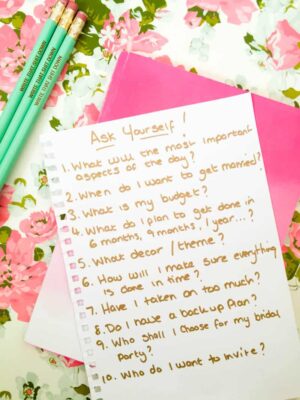 WRITE THAT SHIT DOWN
WRITE THAT SHIT DOWN
Ask Yourself!
1. What will the most important
aspects of the day?
2. When do I want to get married?
3. What is my budget?
4. What do I plan to get done in
6 months, 9 months, 1 year...?
5. What decor / theme?
6. How will I make sure everything
is done in time?
7. Have I taken on too much?
8. Do I have a backup plan?
9. Who shall I choose for my bridal
party?
10. Who do I want to invite?